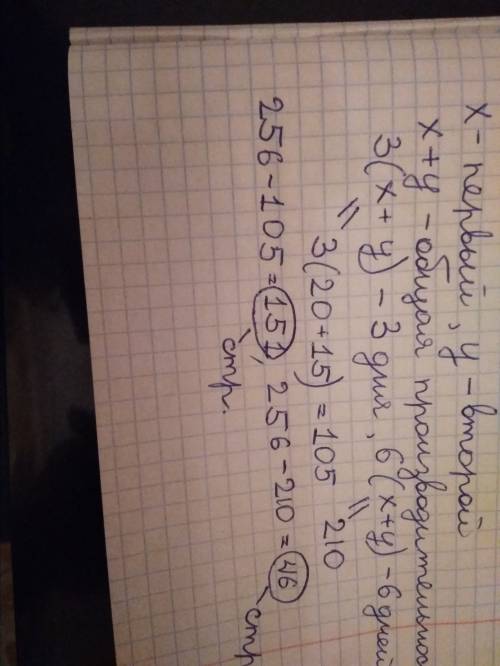 x - первый, y - второй
x + y - общая производительно
3(x + y) - 3 дня, 6(x+y) - 6 дней
3(20 + 15) = 105 210
256 - 105 = 151, 256 - 210 = 46
стр. стр